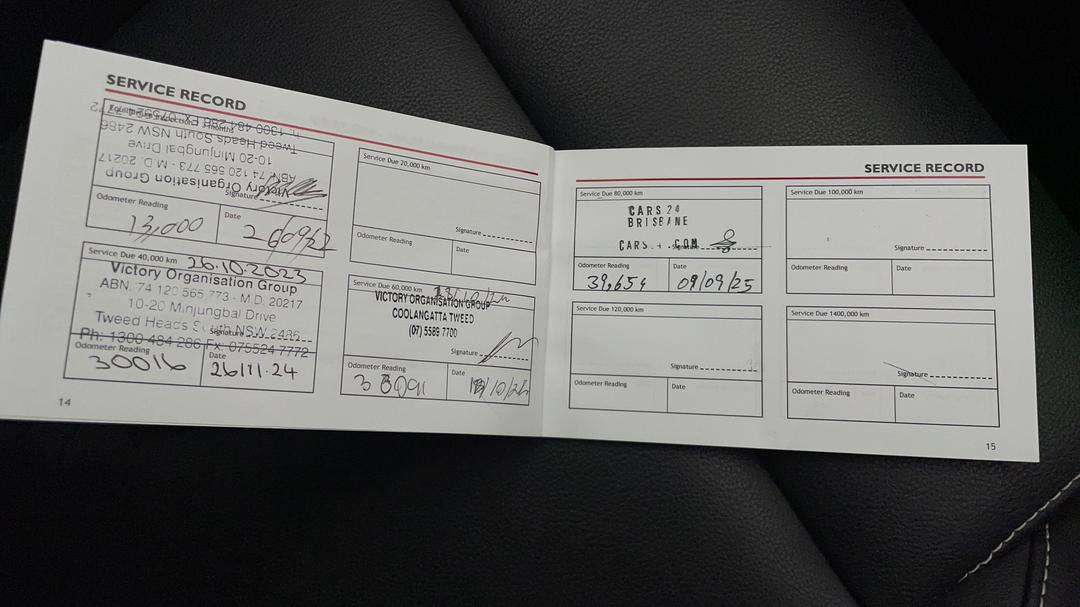 SERVICE RECORD
months
n: 1300 484 286
Tweed Heads South NSW 2486
10-20 Minjungbai Drive
ABN. 74 120 565 773 - M.D. 20217
Victory Organisation Group
Signature
Odometer Reading
13,000
Date
Service Due 20,000 km
Signature
Odometer Reading
Date
Service Due 40,000 km 26.10.2023
Victory Organisation Group
ABN. 74 120 565 773 - M.D. 20217
10-20 Minjungbai Drive
Tweed Heads South NSW 2486
Signature
Ph: 1300 484 286 Fx: 075524 7772
Odometer Reading
30016
Date
26111.24
Service Due 60,000 km
VICTORY ORGANISATION GROUP
COOLANGATTA TWEED
(07) 5585 7700
Signature
Odometer Reading
Date
14
SERVICE RECORD
Service Due 80,000 km
CARS 24
BRISBANE
CARS COM
Signature
Odometer Reading
39,654
Date
09/09/25
Service Due 100,000 km
Signature
Odometer Reading
Date
Service Due 120,000 km
Signature
Odometer Reading
Date
Service Due 1400,000 km
Signature
Odometer Reading
Date
15